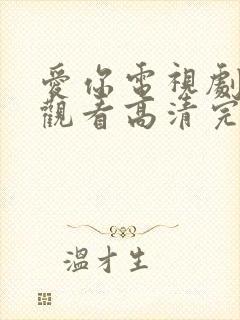 愛你電視劇
觀看高清完
溫才生